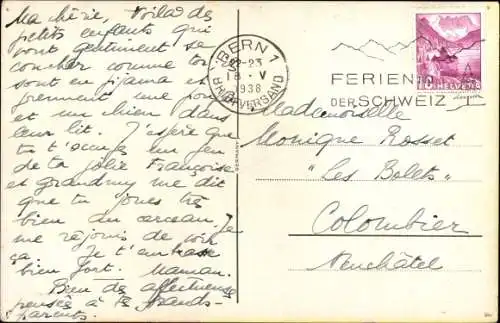 Ma chérie, Voilà de
petits enfants qui
vont gentiment se
coucher comme toi
sont en pyjama et
prennent une
et un chien dans
leur lit. J'espère que
tu t'occupes un peu
de ta jolie Françoise
et grandmy me dit
que tu joues très
bien du cerceau, Je
me réjouis de voir
ça. Je t'embrasse
bien fort. Maman.
Bien des affectueuses
pensées à tes grands-
parents.
BERN 1
22-23
18.V
1938
BRIEFVERSAND
FERIEN
DER SCHWEIZ
HELVETIA
10
GERMANY
Mademoiselle
Monique Rosset
"Les Bolets"
Colombier
Neuchâtel